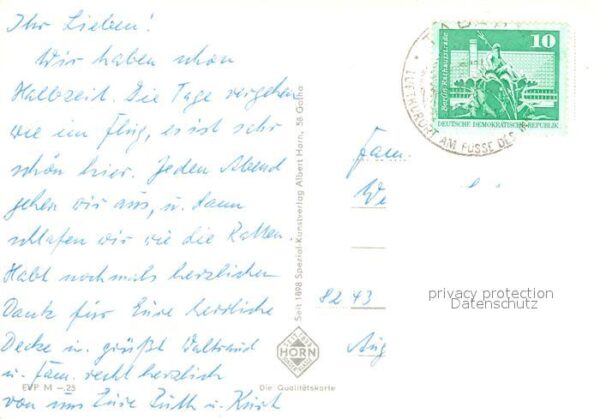 Ihr Lieben!
Wir haben schon
Halbzeit. Die Tage vergehen
wie im Flug, es ist sehr
schön hier. Jeden Abend
gehen wir aus, u. dann
schlafen wir wie die Ratten.
Habt nochmals herzlichen
Dank für Eure herrliche
Decke u. grüßt Waltraud
u. Fam. recht herzlich
von uns Eure Ruth u. Kurt
EVP M –.25
Die Qualitätskarte
HORN
Seit 1898 Spezial-Kunstverlag Albert Horn, 58 Gotha
10
Berlin, Rathausstraße
DEUTSCHE DEMOKRATISCHE REPUBLIK
LUFTKURORT AM FUSSE DES
Fam.
We
82 43
Aug
privacy protection
Datenschutz